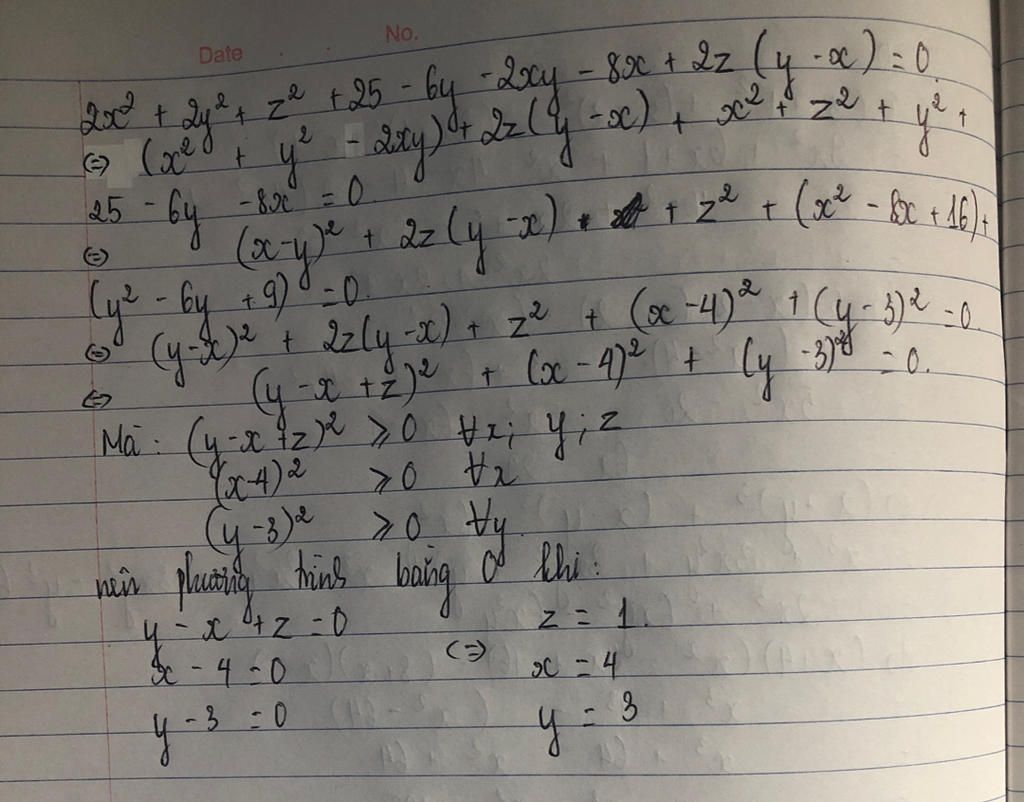 Date . . No.
2x² + 2y² + z² + 25 - 6y - 2xy - 8x + 2z (y - x) = 0.
⇔ (x² + y² - 2xy) + 2z(y - x) + x² + z² + y² +
25 - 6y - 8x = 0.
⇔ (x-y)² + 2z(y - x) + z² + (x² - 8x + 16) +
(y² - 6y + 9) = 0.
⇔ (y-x)² + 2z(y - x) + z² + (x - 4)² + (y - 3)² = 0.
⇔ (y - x + z)² + (x - 4)² + (y - 3)² = 0.
Mà : (y - x + z)² ⩾ 0 ∀x; y; z
(x-4)² ⩾ 0 ∀x
(y - 3)² ⩾ 0 ∀y.
nên phương trình bằng 0 khi:
y - x + z = 0 z = 1.
x - 4 = 0 ⇔ x = 4
y - 3 = 0 y = 3